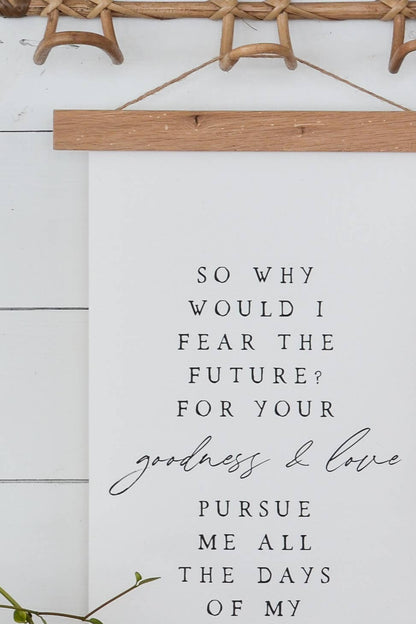 SO WHY
WOULD I
FEAR THE
FUTURE?
FOR YOUR
goodness & love
PURSUE
ME ALL
THE DAYS
OF MY